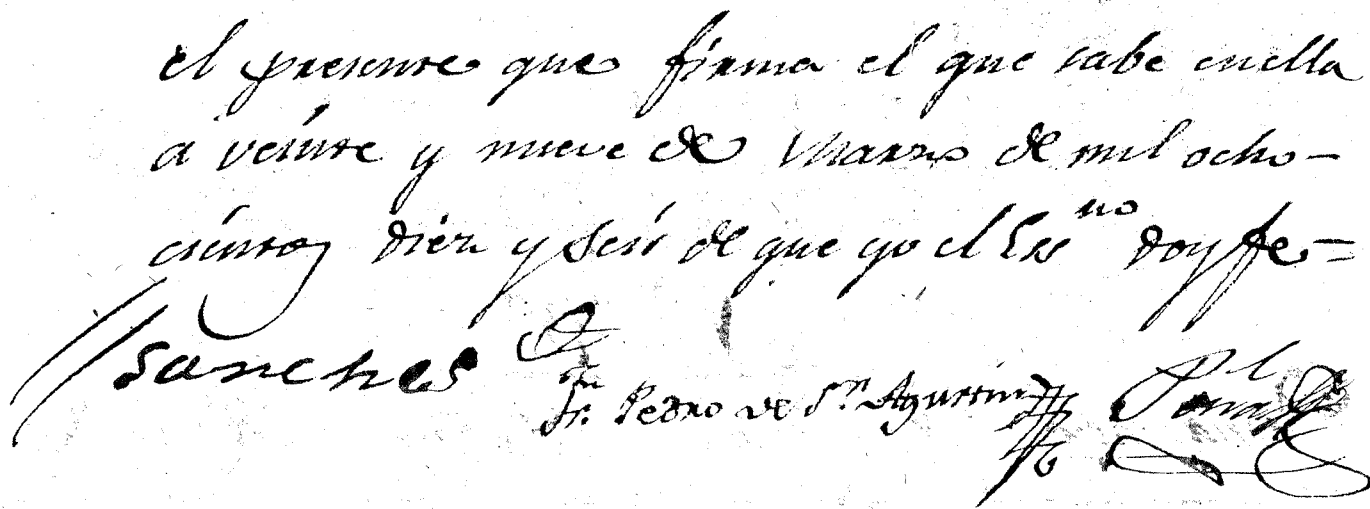 el presente que firma el que sabe enella
a veinte y nueve de Marzo de mil ocho-
cientos diez y seis de que yo el Essno doy fe=
Sanches Fr. Pedro de Sn Agustin